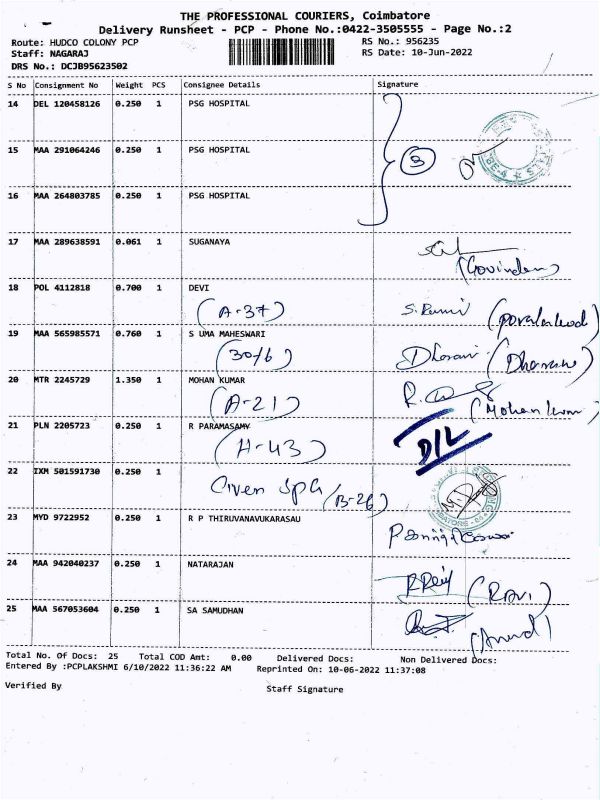 THE PROFESSIONAL COURIERS, Coimbatore
Delivery Runsheet - PCP - Phone No.:0422-3505555 - Page No.:2
Route: HUDCO COLONY PCP RS No.: 956235
Staff: NAGARAJ RS Date: 10-Jun-2022
DRS No.: DCJB95623502
S No Consignment No Weight PCS Consignee Details Signature
14 DEL 120458126 0.250 1 PSG HOSPITAL
15 MAA 291064246 0.250 1 PSG HOSPITAL
3
16 MAA 264803785 0.250 1 PSG HOSPITAL
17 MAA 289638591 0.061 1 SUGANAYA
18 POL 4112818 0.700 1 DEVI
(A-37)
19 MAA 565985571 0.760 1 S UMA MAHESWARI
(30/6)
20 MTR 2245729 1.350 1 MOHAN KUMAR
(A-21)
21 PLN 2205723 0.250 1 R PARAMASAMY D/L
(H-43)
22 IXM 501591730 0.250 1
(B-26)
23 MYD 9722952 0.250 1 R P THIRUVANAVUKARASAU
24 MAA 942040237 0.250 1 NATARAJAN
(RAVI)
25 MAA 567053604 0.250 1 SA SAMUDHAN
Total No. Of Docs: 25 Total COD Amt: 0.00 Delivered Docs: Non Delivered Docs:
Entered By :PCPLAKSHMI 6/10/2022 11:36:22 AM Reprinted On: 10-06-2022 11:37:08
Verified By Staff Signature